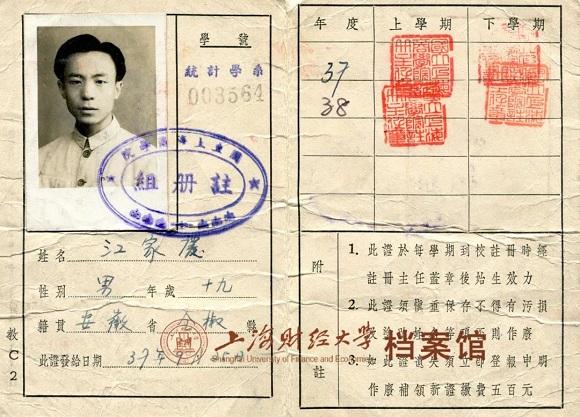 學號
統計學系
003564
國立上海商學院
註册組
姓名 江家
性別 男 年歲 十九
籍貫 安徽 省 全椒 縣
此證發給日期 37年9月
教 C 2
年度 上學期 下學期
37
38
附註
1. 此證於每學期到校註冊時經
註冊主任蓋章後始生效力
2. 此證須慎重保存不得有污損
作廢
3. 如此證遺失須立即登報申明
作廢補領新證繳費五百元
上海财经大学 档案馆
Shanghai University of Finance and Economics